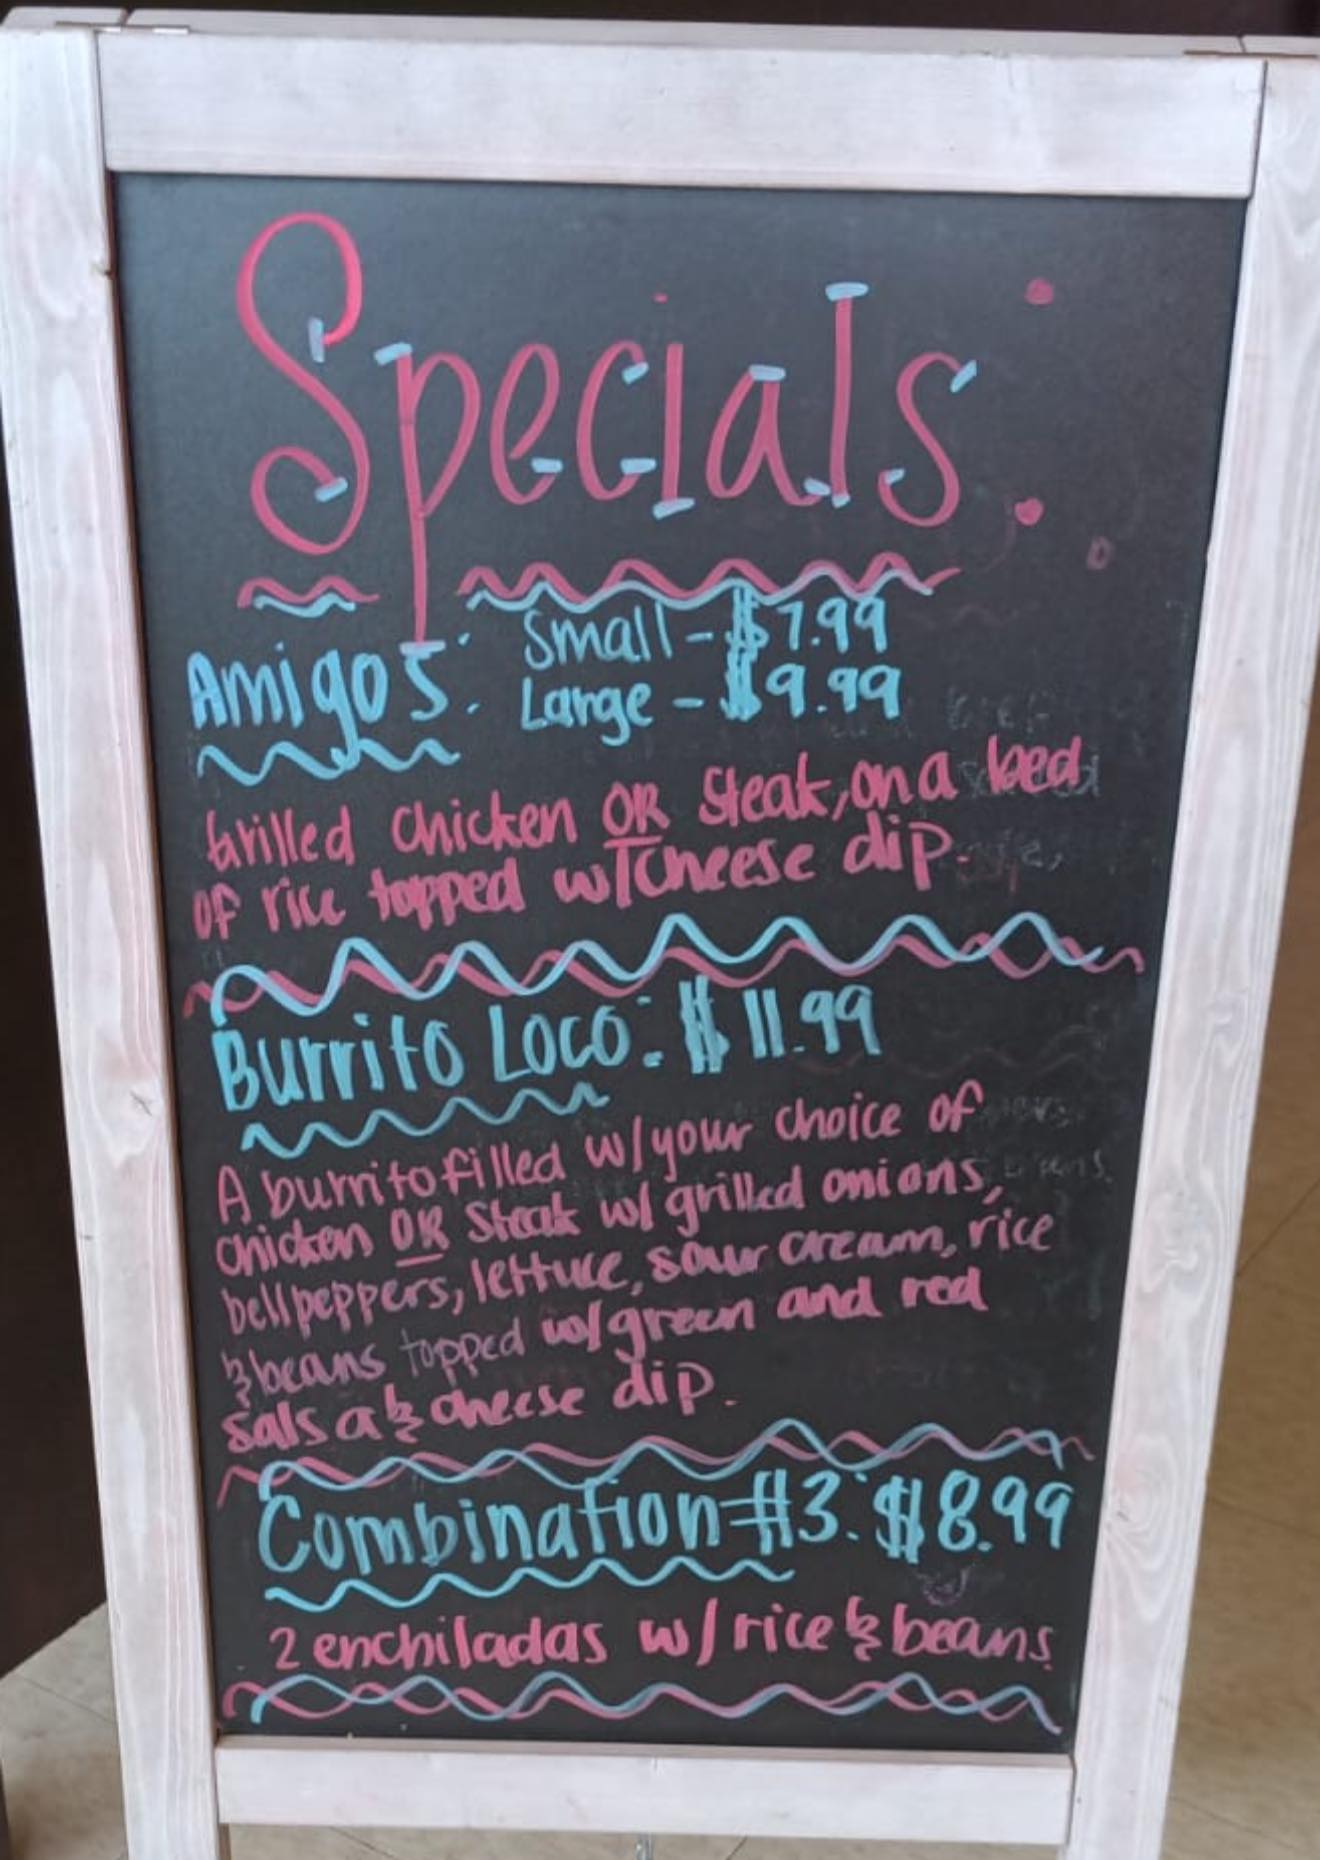 Specials:
Amigos: Small - $7.99
Large - $9.99
Grilled Chicken OR Steak, on a bed
of rice topped w/ cheese dip.
Burrito Loco: $11.99
A burrito filled w/ your choice of
chicken OR Steak w/ grilled onions,
bellpeppers, lettuce, sour cream, rice
& beans topped w/ green and red
salsa & cheese dip.
Combination #3: $8.99
2 enchiladas w/ rice & beans.